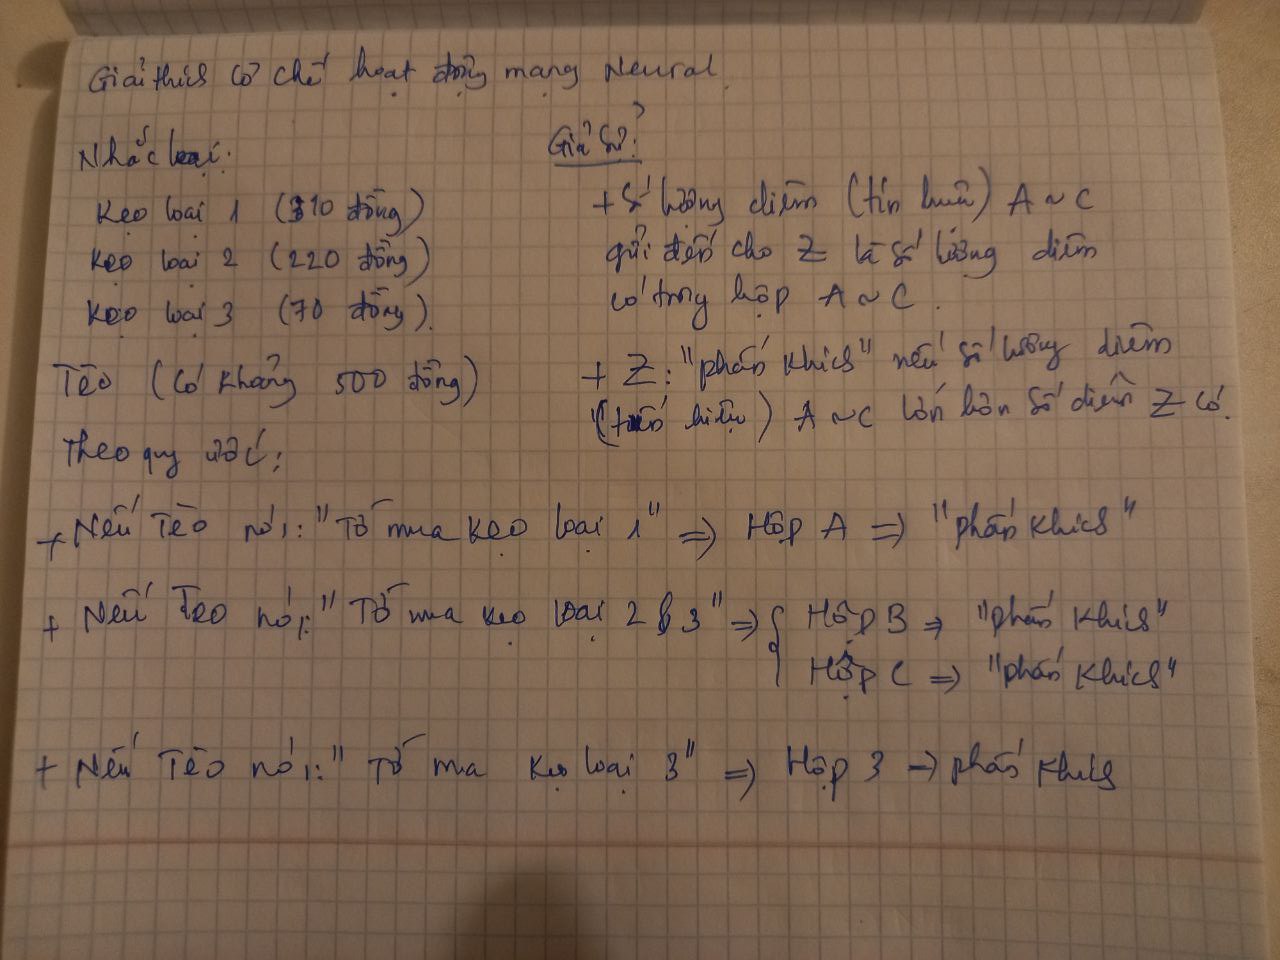 Giải thích cơ chế hoạt động mạng Neural
Nhắc lại:
Kẹo loại 1 (310 đồng)
Kẹo loại 2 (220 đồng)
Kẹo loại 3 (70 đồng).
Tèo (có khoảng 500 đồng)
Giả sử:
+ Số lượng điểm (tín hiệu) A ~ C
gửi đến cho Z là số lượng điểm
có trong hộp A ~ C.
+ Z: "phấn khích" nếu số lượng điểm
(tín hiệu) A ~ C lớn hơn số điểm Z có.
Theo quy ước:
+ Nếu Tèo nói: "Tớ mua kẹo loại 1" => Hộp A => "phấn khích"
+ Nếu Tèo nói: "Tớ mua kẹo loại 2 & 3" => { Hộp B => "phấn khích"
Hộp C => "phấn khích"
+ Nếu Tèo nói: "Tớ mua kẹo loại 3" => Hộp 3 => phấn khích